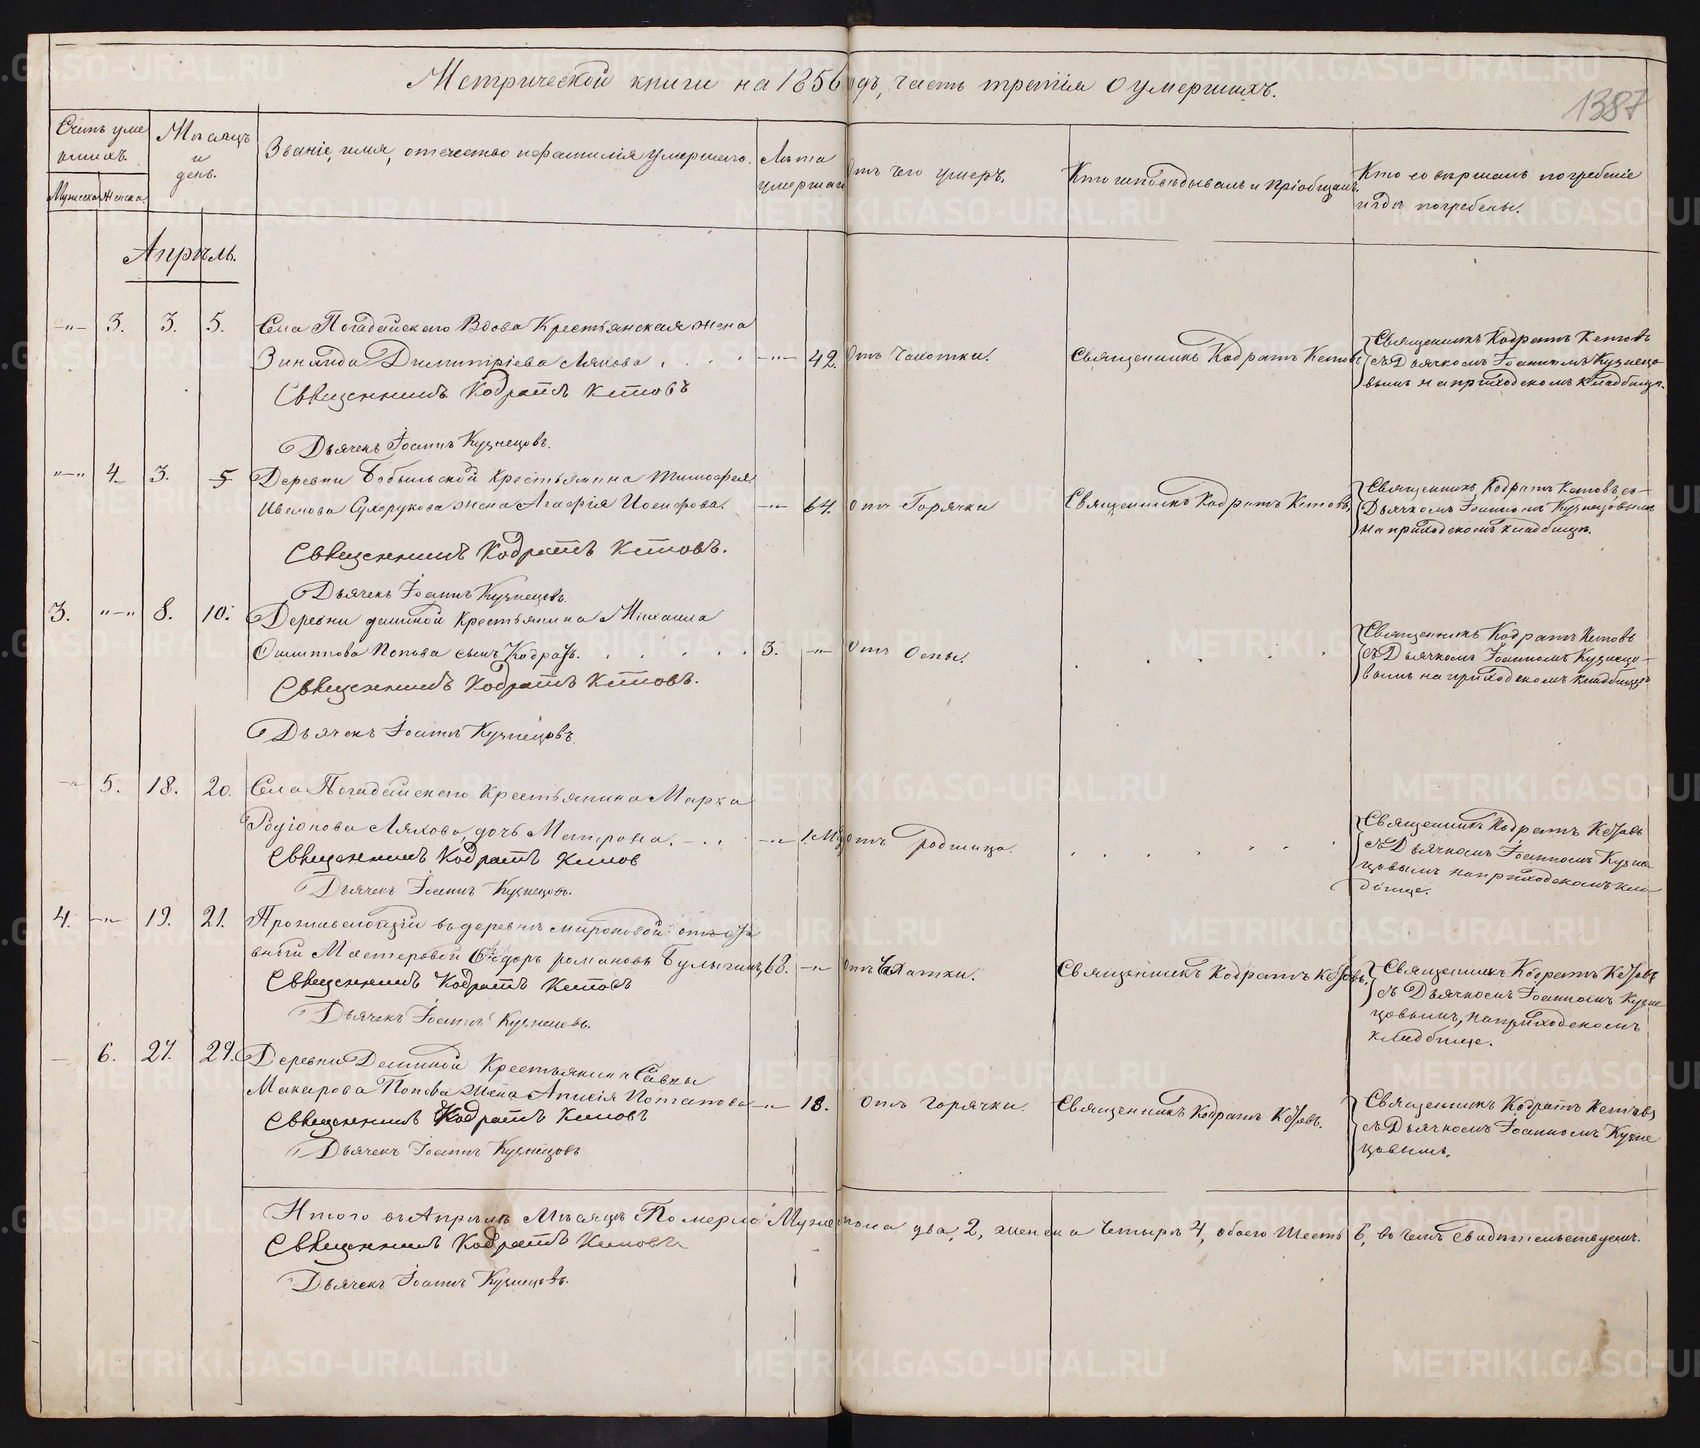 Метрической книги на 1856 годъ, часть третiя о умершихъ.
1387
Счетъ умершихъ.
Мужеска
Женска
Мѣсяцъ и день.
Званiе, имя, отечество и фамилiя умершаго.
Лѣта умершаго
Отъ чего умеръ.
Кто исповѣдывалъ и прiобщалъ.
Кто совершалъ погребенiе
и гдѣ погребены.
Апрѣль.
-"- 3. 3. 5. Села Погадайскаго Вдова Крестьянская жена
Зинаида Димитрiева Ляхова -"- 42. Отъ Чахотки. Священникъ Кодратъ Кетовъ
Священникъ Кодратъ Кетовъ
съ Дьячкомъ Iоанномъ Кузнецо-
вымъ на приходскомъ кладбищѣ.
Священникъ Кодратъ Кетовъ
Дьячекъ Iоаннъ Кузнецовъ.
"-" 4. 3. 5 Деревни Бобыльской Крестьянина Тимофея
Иванова Сухорукова жена Агафiя Iосифова. -"- 64. Отъ Горячки Священникъ Кодратъ Кетовъ.
Священникъ Кодратъ Кетовъ съ
Дьячкомъ Iоанномъ Кузнецовымъ
на приходскомъ кладбищѣ.
Священникъ Кодратъ Кетовъ.
Дьячекъ Iоаннъ Кузнецовъ.
3. "-" 8. 10. Деревни Крестьянина Михаила
Попова сынъ Кодратъ. 3. -"- Отъ Оспы.
Священникъ Кодратъ Кетовъ
съ Дьячкомъ Iоанномъ Кузнецо-
вымъ на приходскомъ кладбищѣ
Священникъ Кодратъ Кетовъ.
Дьячекъ Iоаннъ Кузнецовъ
-"- 5. 18. 20. Села Погадайскаго Крестьянина Марка
Родiонова Ляхова дочь Матрона. -"- 1. Отъ родимца.
Священникъ Кодратъ Кетовъ
съ Дьячкомъ Iоанномъ Кузне
цовымъ на приходскомъ кла
дбище.
Священникъ Кодратъ Кетов
Дьячекъ Iоаннъ Кузнецовъ.
4. -"- 19. 21. Проживающiй въ деревнѣ Мироновой отста
вный Мастеровой Ѳедоръ Романовъ Булыгинъ 68. -"- Отъ Чахатки. Священникъ Кодратъ Кетовъ.
Священникъ Кодратъ Кетовъ
съ Дьячкомъ Iоанномъ Кузне
цовымъ, на приходскомъ
кладбище.
Священникъ Кодратъ Кетовъ
Дьячекъ Iоаннъ Кузнецовъ.
- 6. 27. 29. Деревни Крестьянина Савы
Макарова Попова жена Анисiя Потапова -"- 18. Отъ горячки. Священникъ Кодратъ Кетовъ.
Священникъ Кодратъ Кетовъ
съ Дьячкомъ Iоанномъ Кузне
цовымъ.
Священникъ Кодратъ Кетовъ
Дьячекъ Iоаннъ Кузнецовъ
Итого въ Апрѣлѣ Мѣсяцѣ Померло Мужескаго два, 2, женска Четыре 4, обоего Шесть 6, въ чемъ Свидѣтельствуемъ.
Священникъ Кодратъ Кетовъ
Дьячекъ Iоаннъ Кузнецовъ.
METRIKI.GASO-URAL.RU